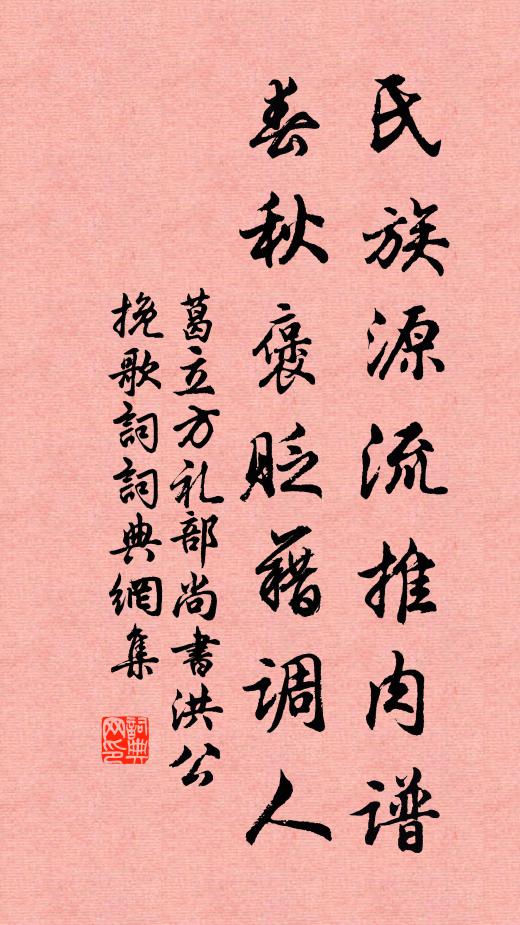 氏族源流推肉谱
春秋褒贬藉调人
葛立方礼部尚書洪公
挽歌詞詞典網集
詞典网印